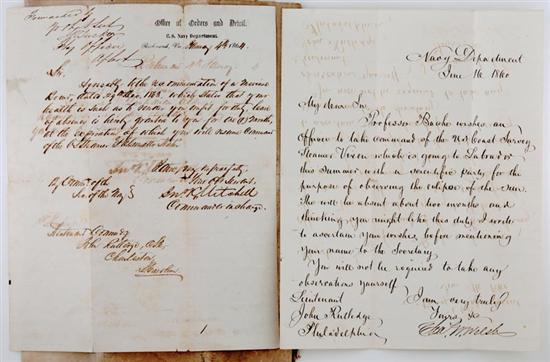 Forwarded by
Office of Orders and Detail.
C.S. Navy Department,
Richmond, Va.
1864.
Sir,
Agreeably to the recommendation of a Medical
which States that your
health is such as to render you unfit for duty, leave
of absence is hereby granted to you for one month,
at the expiration of which you will resume Command
of the C.S. Steamer
respectfully
By Comd. of the
Sec. of the Navy
Jno. K. Mitchell
Commander in charge.
Lieutenant Commdg.
John Rutledge, CSN
Charleston,
Navy Department
June 16. 1860
My dear Sir,
Professor Bache wishes an
Officer to take command of the U.S. Coast Survey
Steamer Vixen which is going to Labrador
this Summer with a scientific party for the
purpose of observing the eclipse of the Sun.
She will be absent about two months and
thinking you might like this duty I write
to ascertain your wishes before mentioning
your name to the Secretary.
You will not be required to take any
observations yourself.
I am, very truly
Lieutenant
Yours, &c
John Rutledge
Chas. W. Welsh
Philadelphia